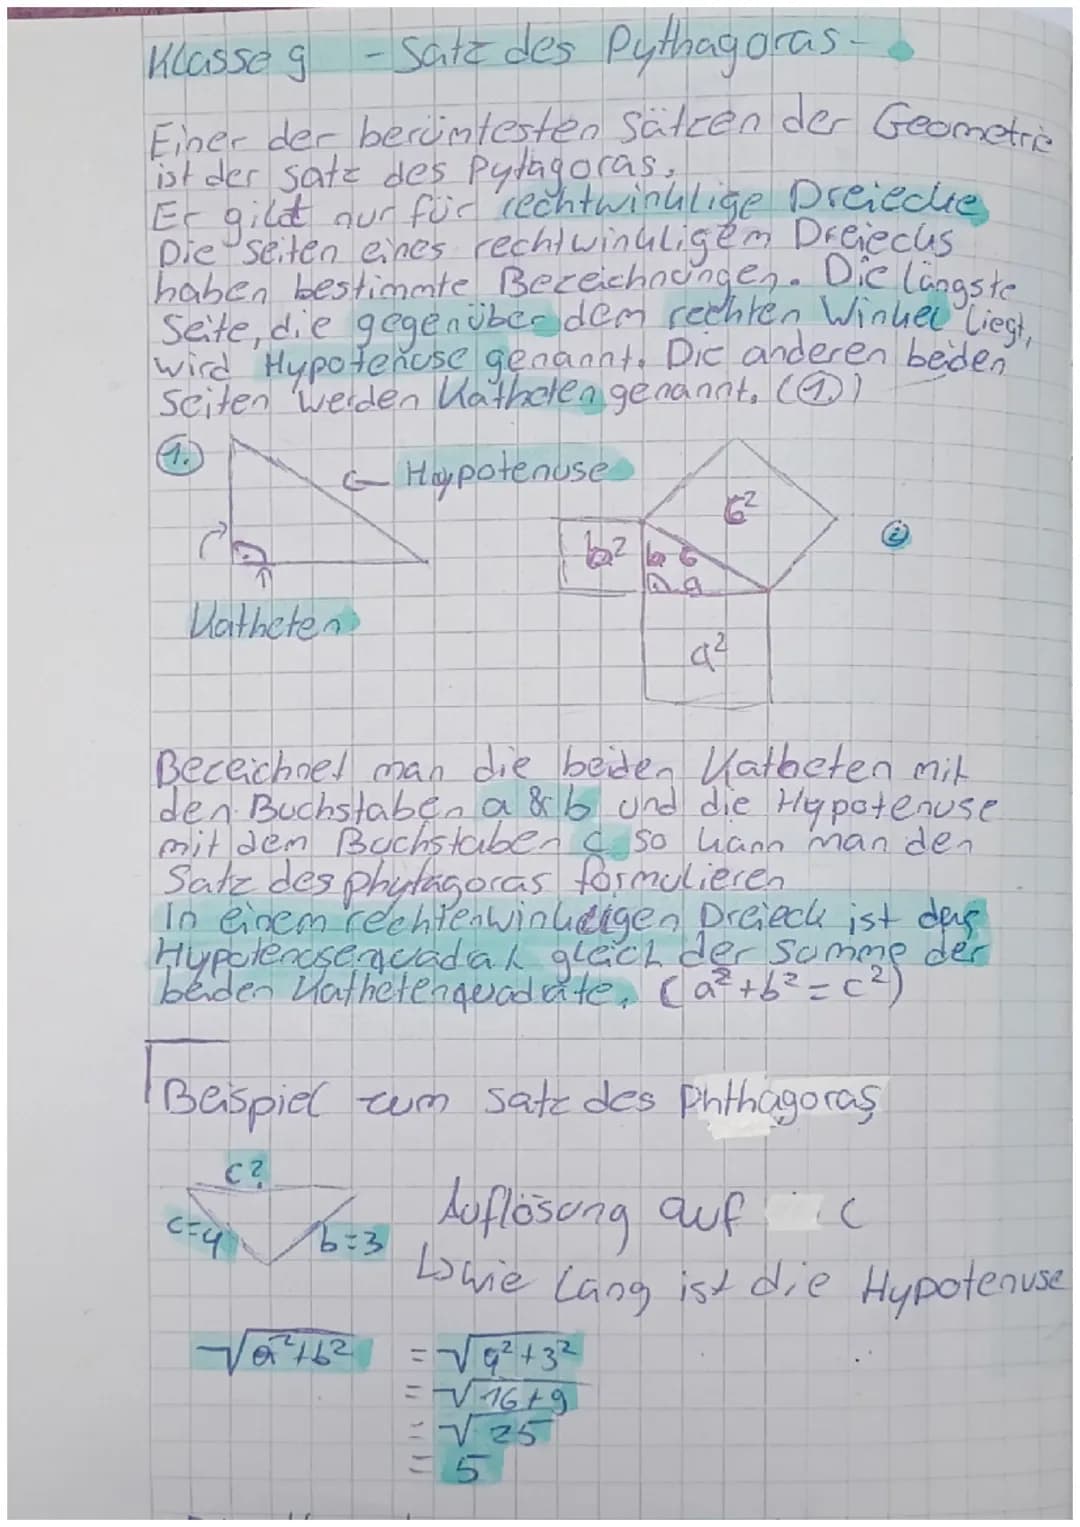 Klasse 9 - Satz des Pythagoras -
Einer der berümtesten Sätzen der Geometrie
ist der satz des Pytagoras.
Er gildt nur für rechtwinklige Dreiecke
Die seiten eines rechtwinkligem Dreiecks
haben bestimmte Bezeichnungen. Die längste
Seite, die gegenüber dem rechten Winkel liegt,
wird Hypotenuse genannt. Die anderen beiden
Seiten werden Katheten genannt. (1.)
1.
Hypotenuse
Katheten
2
b² b c
a
c²
a²
Bezeichnet man die beiden Katheten mit
den Buchstaben a & b und die Hypotenuse
mit dem Buchstaben c so kann man den
Satz des phytagoras formulieren
In einem rechtenwinkeligen Dreieck ist das
Hypotenusenquadat gleich der Summe der
beiden Kathetenquadrate. (a²+b²=c²)
Beispiel zum satz des Phthagoras
c?
c=4 b=3
Auflösung auf c
↳ wie lang ist die Hypotenuse
√a²+b² = √4²+3²
= √16+9
= √25
= 5